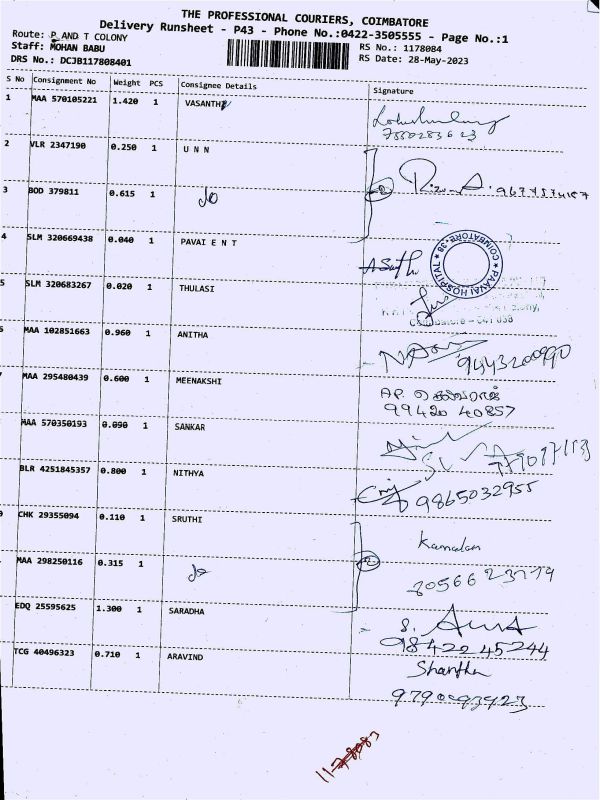 THE PROFESSIONAL COURIERS, COIMBATORE
Delivery Runsheet - P43 - Phone No.:0422-3505555 - Page No.:1
Route: P AND T COLONY
Staff: MOHAN BABU
DRS No.: DCJB117808401
RS No.: 1178084
RS Date: 28-May-2023
S No Consignment No Weight PCS Consignee Details Signature
1 MAA 570105221 1.420 1 VASANTHI
2 VLR 2347190 0.250 1 U N N
3 BOD 379811 0.615 1 do
4 SLM 320669438 0.040 1 PAVAI E N T
PAAVAI HOSPITAL ★ COIMBATORE-38 ★
5 SLM 320683267 0.020 1 THULASI
MAA 102851663 0.960 1 ANITHA
9443200990
MAA 295480439 0.600 1 MEENAKSHI
99420 40857
MAA 570350193 0.090 1 SANKAR
BLR 4251845357 0.800 1 NITHYA 9865032955
CHK 29355094 0.110 1 SRUTHI
MAA 298250116 0.315 1 do
EDQ 25595625 1.300 1 SARADHA
98422 45244
TCG 40496323 0.710 1 ARAVIND Shantha